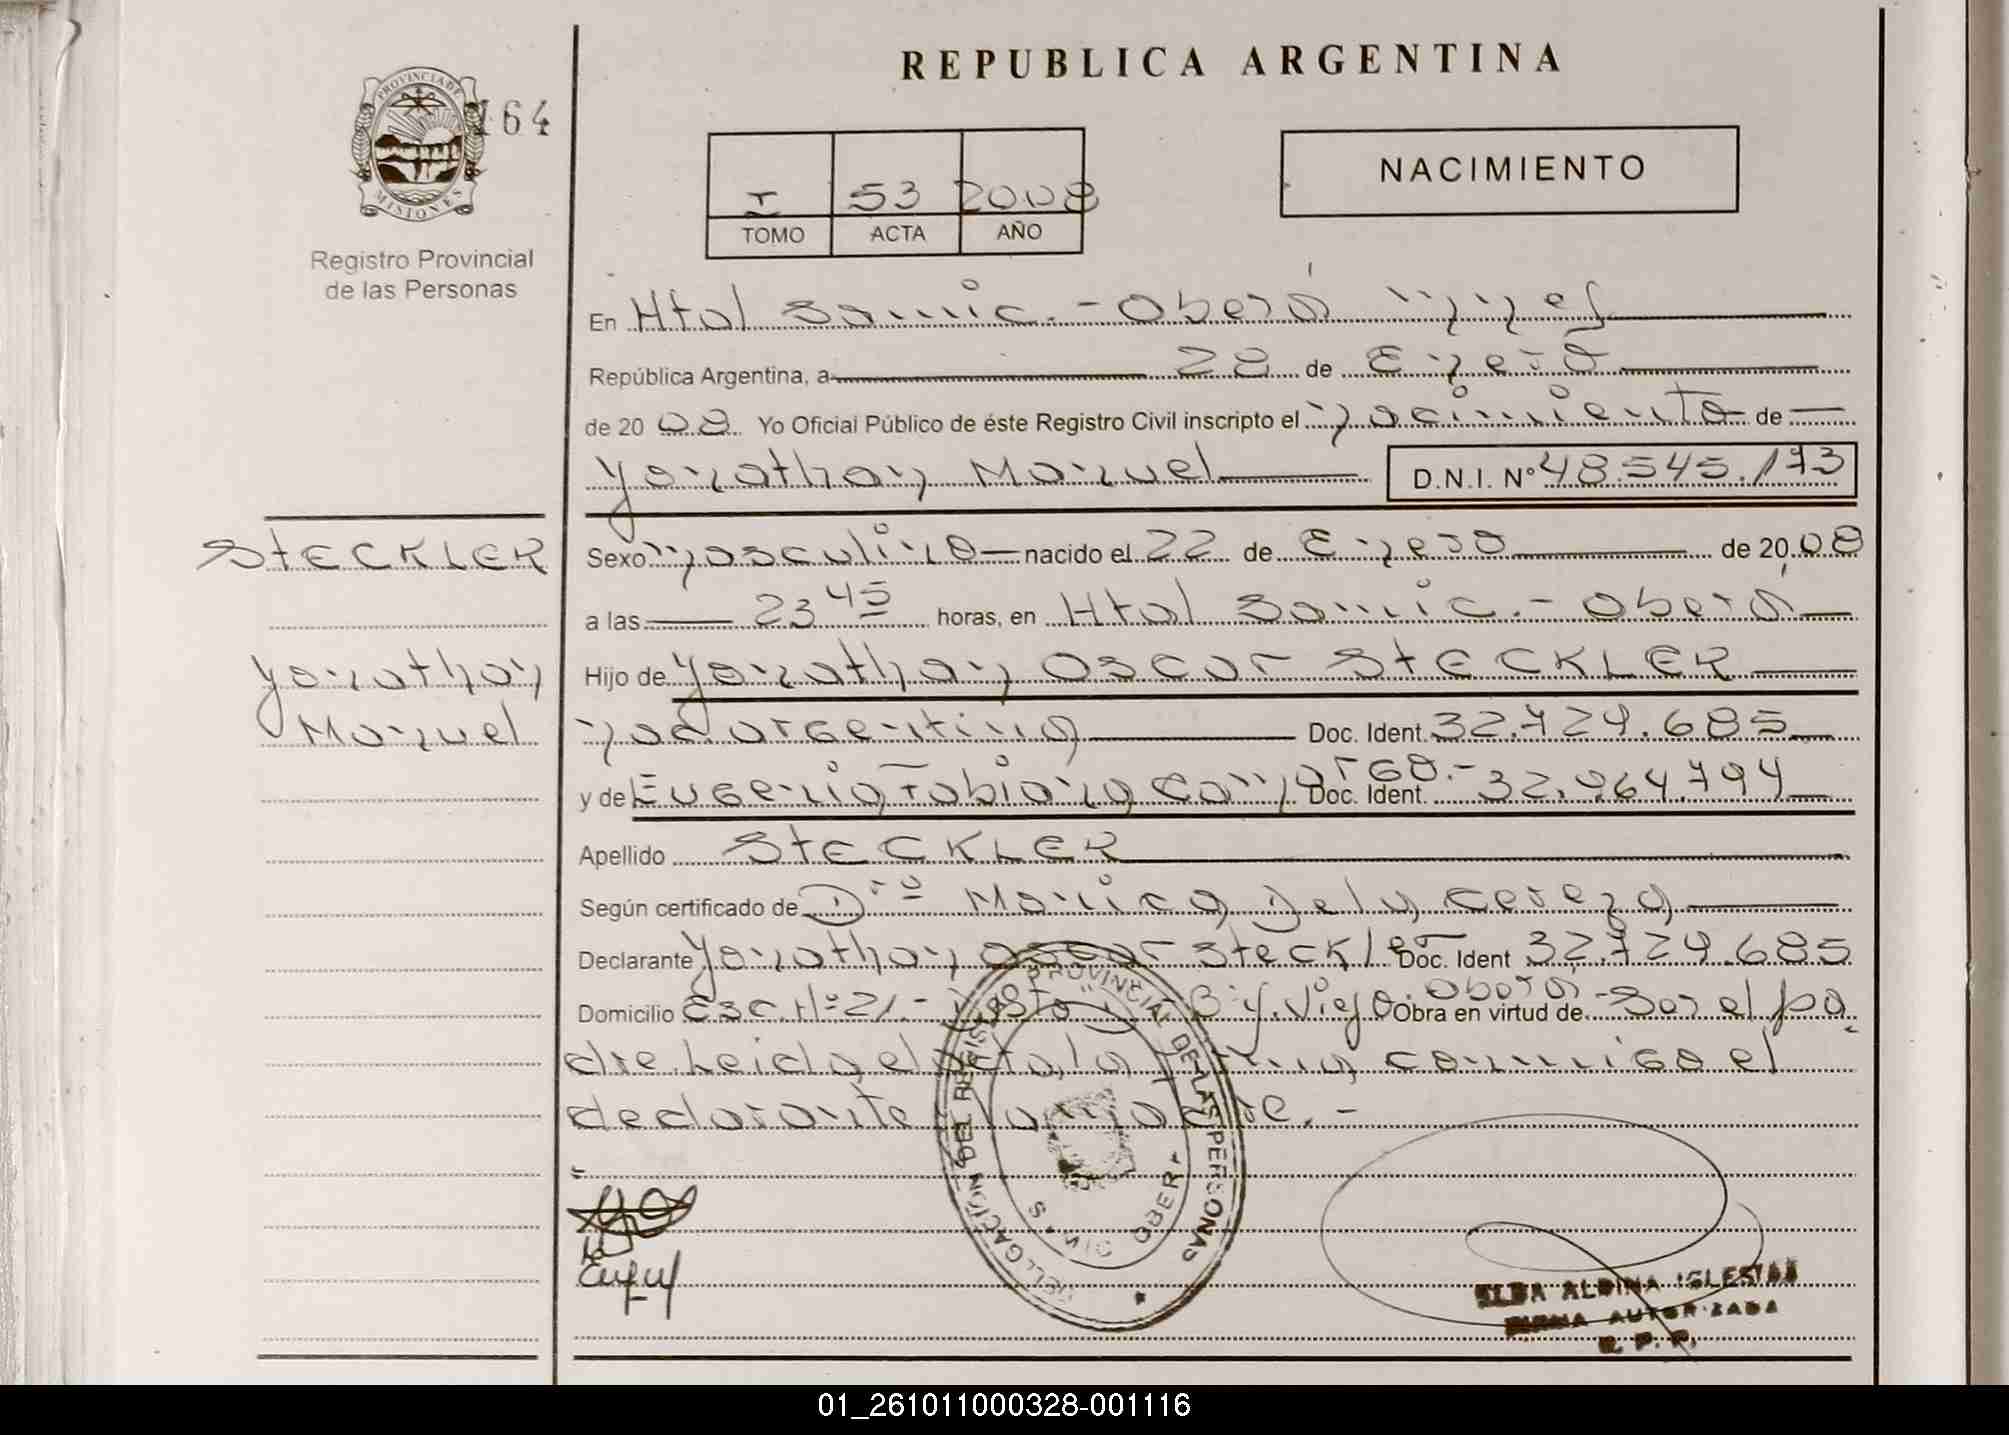 REPUBLICA ARGENTINA
PROVINCIA DE
MISIONES
164
Registro Provincial
de las Personas
I 53 2008
TOMO ACTA AÑO
NACIMIENTO
En Htal Samic.- Oberá Mnes
República Argentina, a 28 de Enero
de 2008 Yo Oficial Público de éste Registro Civil inscripto el nacimiento de
Yonathan Manuel D.N.I. Nº 48.545.173
STECKLER
Yonathan
Manuel
Sexo masculino nacido el 22 de Enero de 2008
a las 23 45 horas, en Htal Samic.- Oberá
Hijo de Yonathan Oscar STECKLER
nac. argentina Doc. Ident. 32.729.685
y de Eugenia Fabiana Doc. Ident. 32.964.794
Apellido STECKLER
Según certificado de Dra Monica
Declarante Yonathan Oscar Steckler Doc. Ident 32.729.685
Domicilio Esc. Nº 21.- Obra en virtud de Ser el pa
dre. Leida el acta, la firma conmigo el
declarante y la madre.-
DEL REGISTRO PROVINCIAL DE LAS PERSONAS
ELBA ALDINA IGLESIAS
FIRMA AUTORIZADA
R. P. P.
01_261011000328-001116